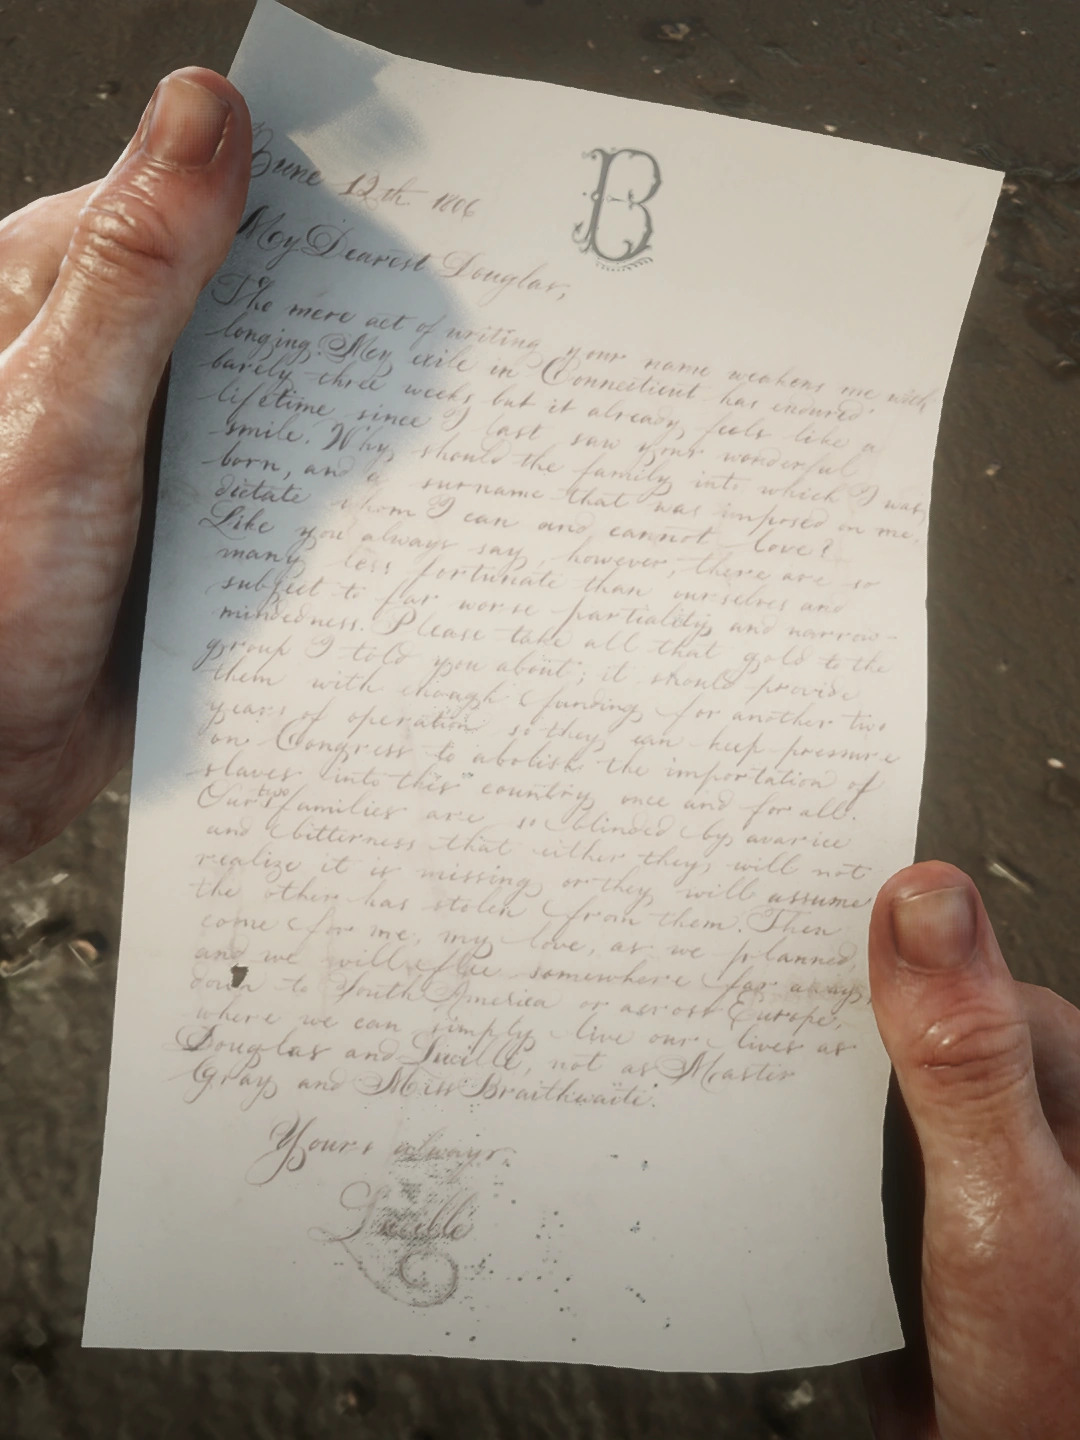 B
June 12th 1806
My Dearest Douglas,
The mere act of writing your name weakens me with
longing. My exile in Connecticut has endured
barely three weeks but it already feels like a
lifetime since I last saw your wonderful
smile. Why should the family into which I was
born, and a surname that was imposed on me,
dictate whom I can and cannot love?
Like you always say, however, there are so
many less fortunate than ourselves and
subject to far worse partiality and narrow-
mindedness. Please take all that gold to the
group I told you about; it should provide
them with enough funding for another two
years of operation so they can keep pressure
on Congress to abolish the importation of
slaves into this country once and for all.
Our two families are so blinded by avarice
and bitterness that either they will not
realize it is missing or they will assume
the other has stolen from them. Then
come for me, my love, as we planned,
and we will flee somewhere far away,
down to South America or across Europe,
where we can simply live our lives as
Douglas and Lucille, not as Master
Gray and Miss Braithwaite.
Yours always
Lucille